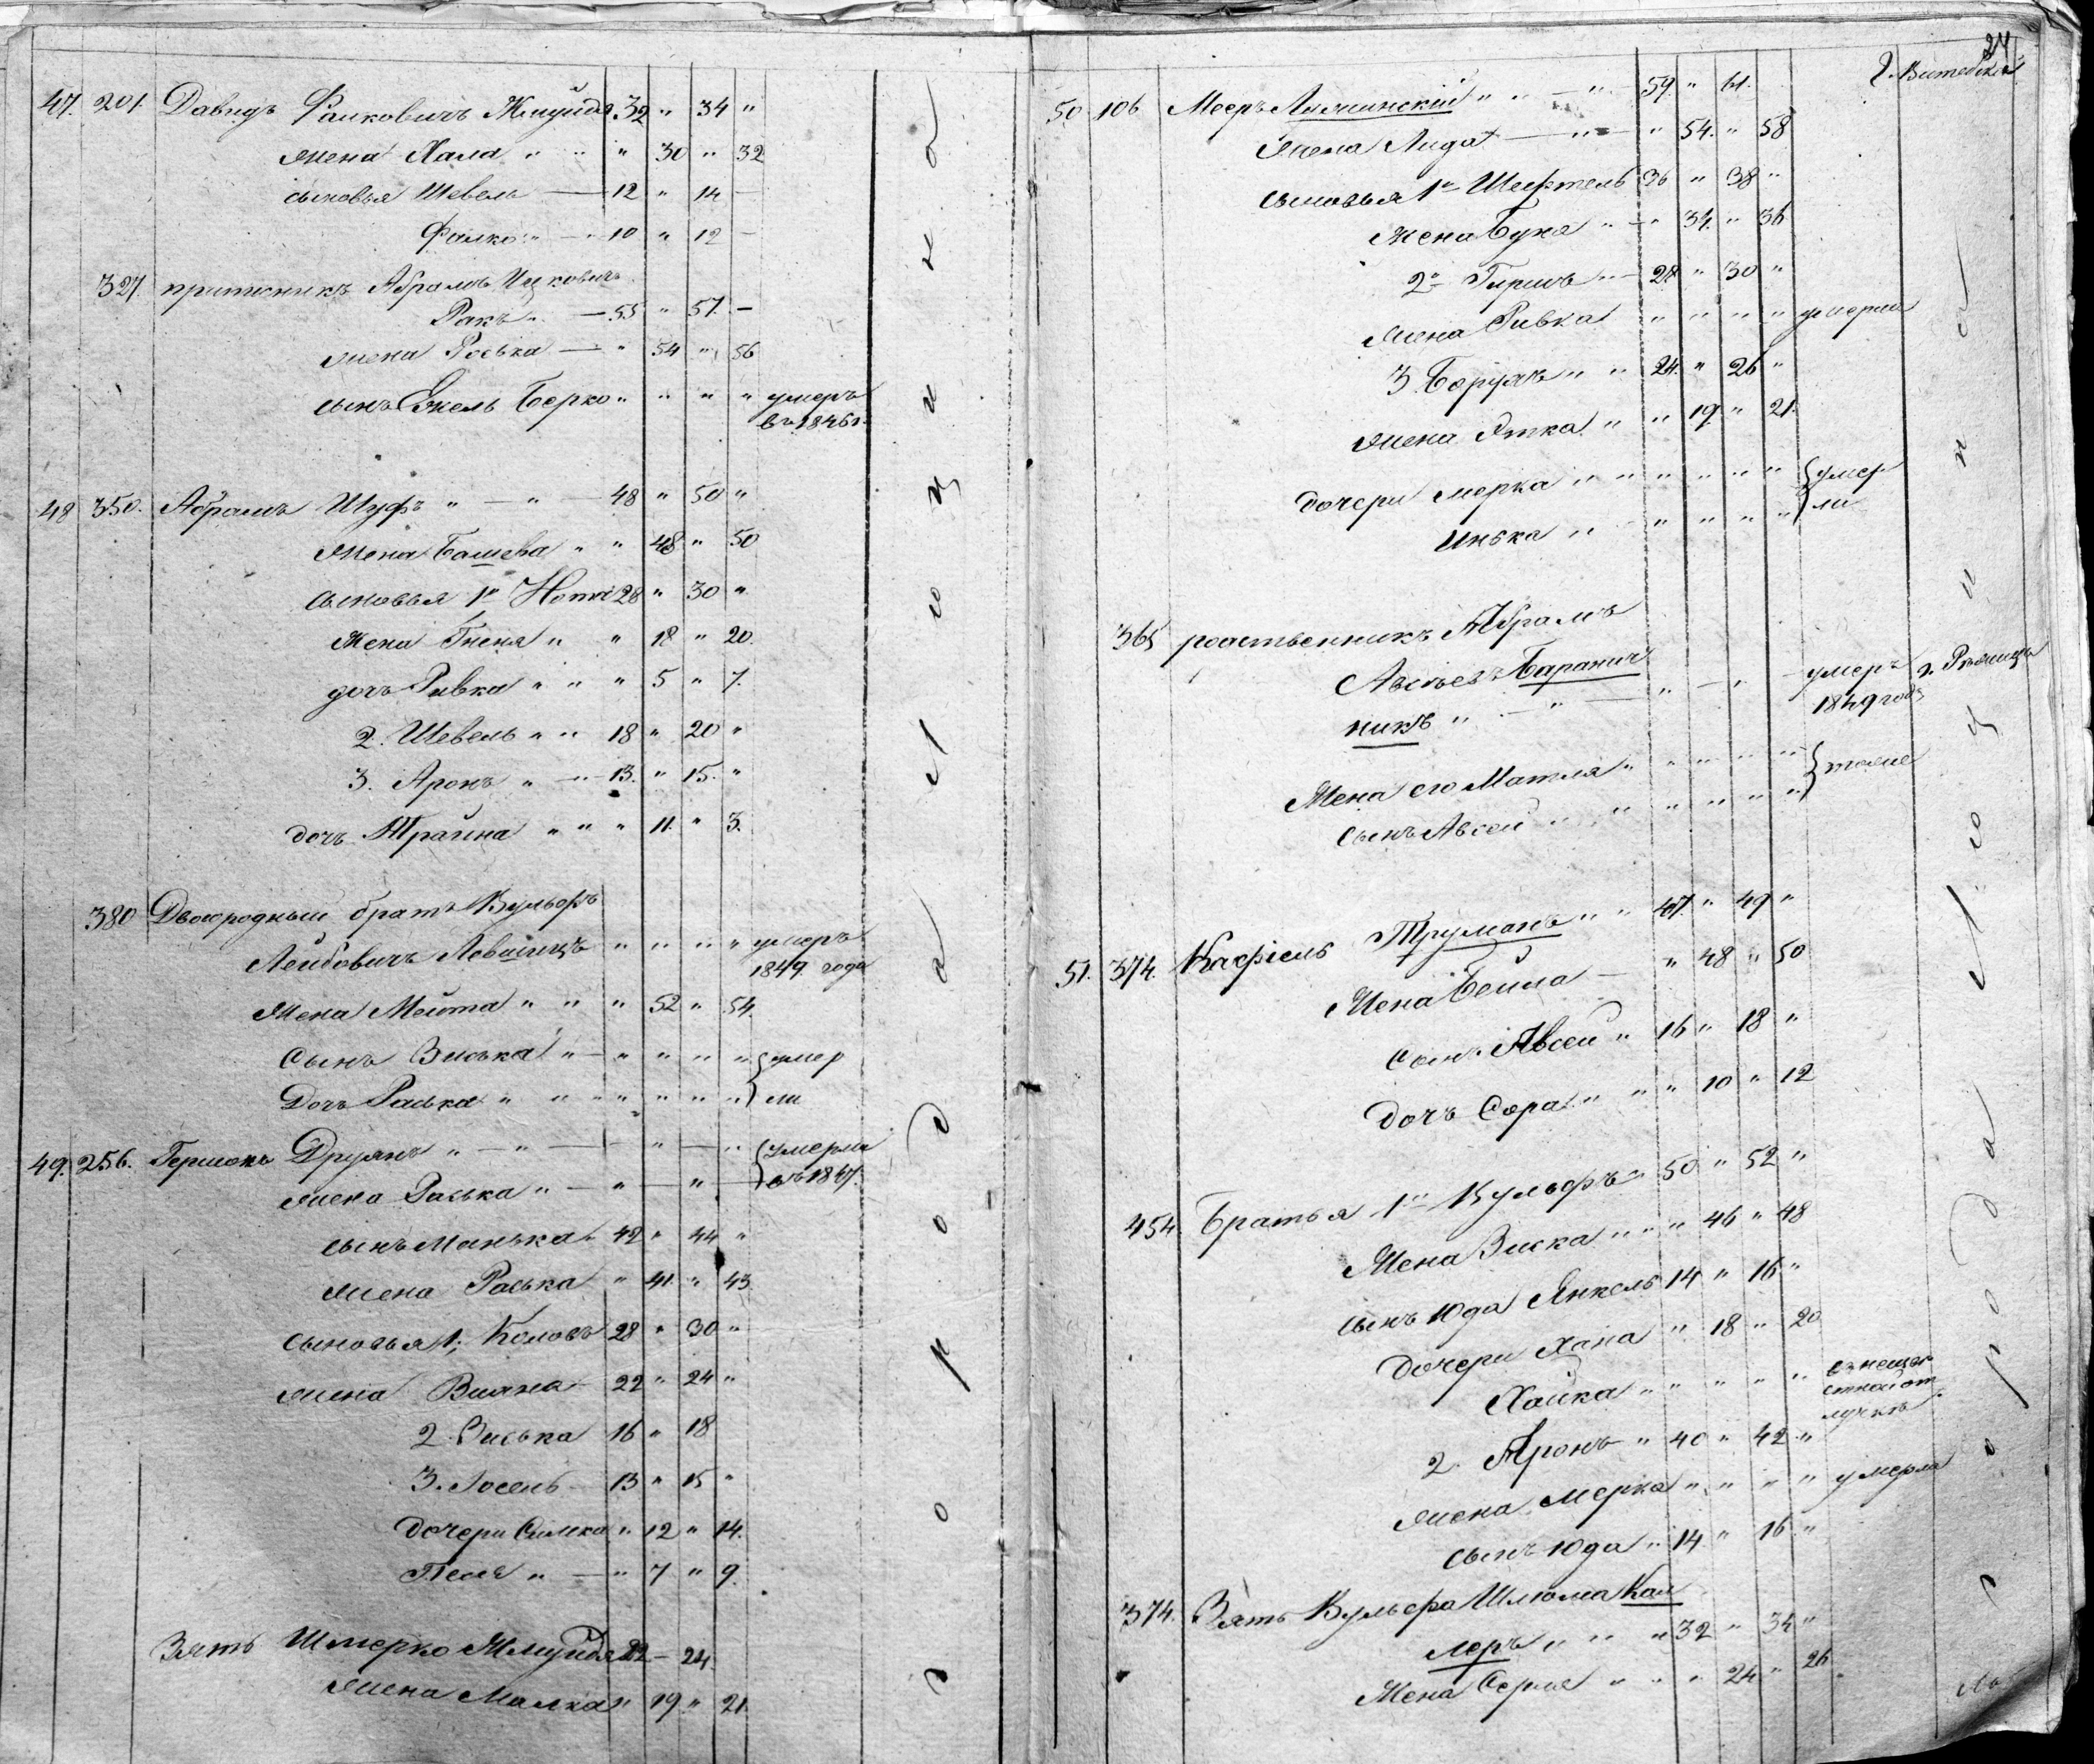 47. 201. Давидъ Фалковичъ Жмуйда 32 " 34 "
жена Хала " " " 30 " 32
сыновья Шевель — 12 " 14 —
Фалко " — " 10 " 12 —
327. притомникъ Абрамъ Ицковичъ
Ракъ " — 55 " 57. —
жена Роська — " 54 " 56
сынъ Ежель Берко " " " " умеръ
въ 1846 г.
48 350. Абрамъ Шуфъ " — " — 48 " 50 "
жена Башева " " 48 " 50
сыновья 1й Нотка 28 " 30 "
жена Гненя " " 18 " 20.
дочь Ривка " " " 5 " 7.
2. Шевель " " 18 " 20 "
3. Аронъ " — " 13. " 15. "
дочь Трайна " " " 11. " 3.
380 Двоюродный братъ Вульфъ
Лейбовичъ Левашицъ " " " " умеръ
1849 года
жена Мейта " " " 52 " 54.
Сынъ Виська " — " " " " умер
Дочь Раська " " " " " " " ли
49. 256. Гершонъ Друянъ " — " — " — " умерли
жена Раська " — " — " — въ 1847.
сынъ Манька " 42 " 44 "
жена Раська " 41. " 43
сыновья 1; Коловъ 28 " 30 "
жена Вияна — 22 " 24 "
2. Виська 16 " 18
3. Лосель — 13 " 15 "
дочери Симка " 12 " 14.
Песя " — " 7 " 9.
Зять Шмерко Жмуйда 22 — 24.
жена Малка " 19 " 21.
города Люцина
24
г. Витебска
50 106 Мееръ Ляминскій " " — " 59. " 61.
жена Лида — " — " 54. " 58
сыновья 1й Шефтель 36 " 38 "
жена Буня " — " 34. " 36
2й Гиршъ " — 28 " 30 "
жена Ривка " " " " умерла
3. Борухъ " " 24. " 26 "
жена Этка " " 19. " 21.
дочери Мерка " " " " " " умер
Инька " " " " " ли
365 родственникъ Абрамъ
Авсѣевъ Баранич
никъ " — " — " — " — умеръ г. Рѣжицы
1849 года
Жена его Матля " " " " " тоже
Сынъ Авсей " " " " " "
51. 374. Касріель Труманъ " " 47. " 49 "
Жена Бейла — " 48 " 50
Сынъ Авсей " 16 " 18 "
дочь Сора " " " 10 " 12
454. Братья 1й Вульфъ " 50 " 52 "
Жена Виска " " " 46 " 48
сынъ Юда Янкель 14 " 16 "
дочери Хана " 18 " 20
Хайка " " " " " въ неизвѣ
стной от
лучкѣ
2. Аронъ " 40 " 42 "
жена Мерка " " " " умерла
сынъ Юда " 14 " 16 "
374. Зять Вульфа Шлюма Кал
леръ " " " 32 " 34 "
Жена Серля " " " 24 " 26
города Люцина